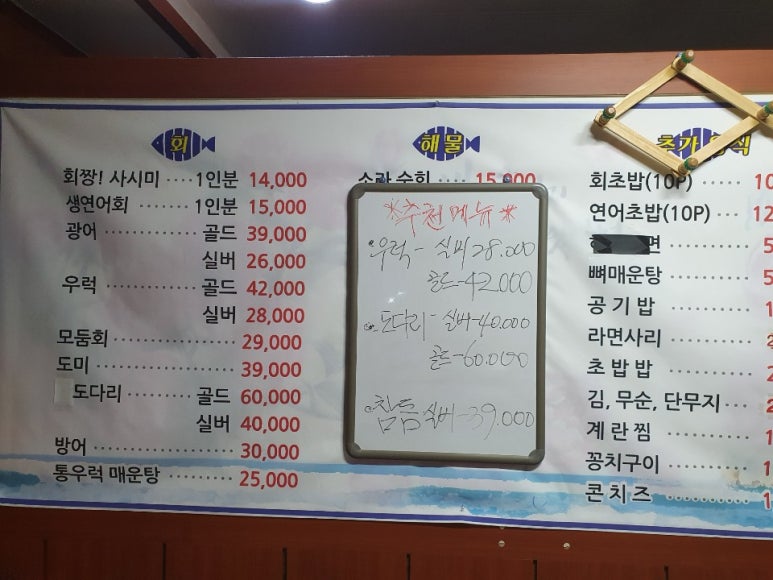 회
회짱! 사시미 ···· 1인분 14,000
생연어회 ···· 1인분 15,000
광어 ········ 골드 39,000
실버 26,000
우럭 ········ 골드 42,000
실버 28,000
모둠회 ················ 29,000
도미 ················ 39,000
도다리 ········ 골드 60,000
실버 40,000
방어 ················ 30,000
통우럭 매운탕 ········ 25,000
해물
15,000
*추천메뉴*
우럭 - 실버 28.000
골드-42000
도다리-실버-40.000
골드-60.000
참돔 실버-39.000
추가
회초밥(10P) ·····
연어초밥(10P) ····
면 ········
뼈매운탕 ········
공기밥 ········
라면사리 ········
초밥밥 ········
김, 무순, 단무지 ···
계란찜 ········
꽁치구이 ········
콘치즈 ········